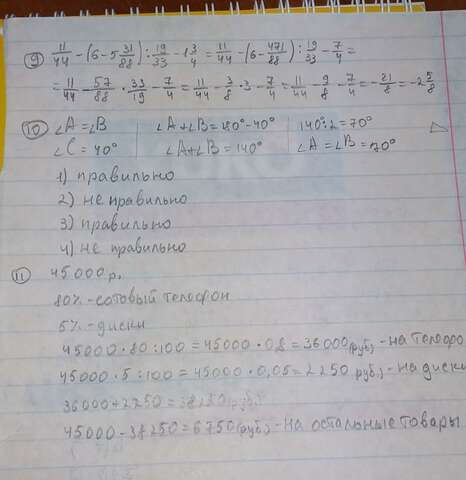 9) 11/44 - (6-5 31/88) : 19/33 - 1 3/4 = 11/44 - (6 - 471/88) : 19/33 - 7/4 =
= 11/44 - 57/88 · 33/19 - 7/4 = 11/44 - 3/8 · 3 - 7/4 = 11/44 - 9/8 - 7/4 = -21/8 = -2 5/8
10) ∠A=∠B ∠A+∠B=180°-40° 140°:2=70°
∠C=40° ∠A+∠B=140° ∠A=∠B=70°
1) правильно
2) не правильно
3) правильно
4) не правильно
11) 45000р.
80% -сотовый телефон
5% -диски
45000·80:100=45000·0,8=36000(руб.) -на телефо
45000·5:100=45000·0,05=2250(руб.) -на диски
36000+2250=38250(руб)
45000-38250=6750(руб.) -на остальные товары